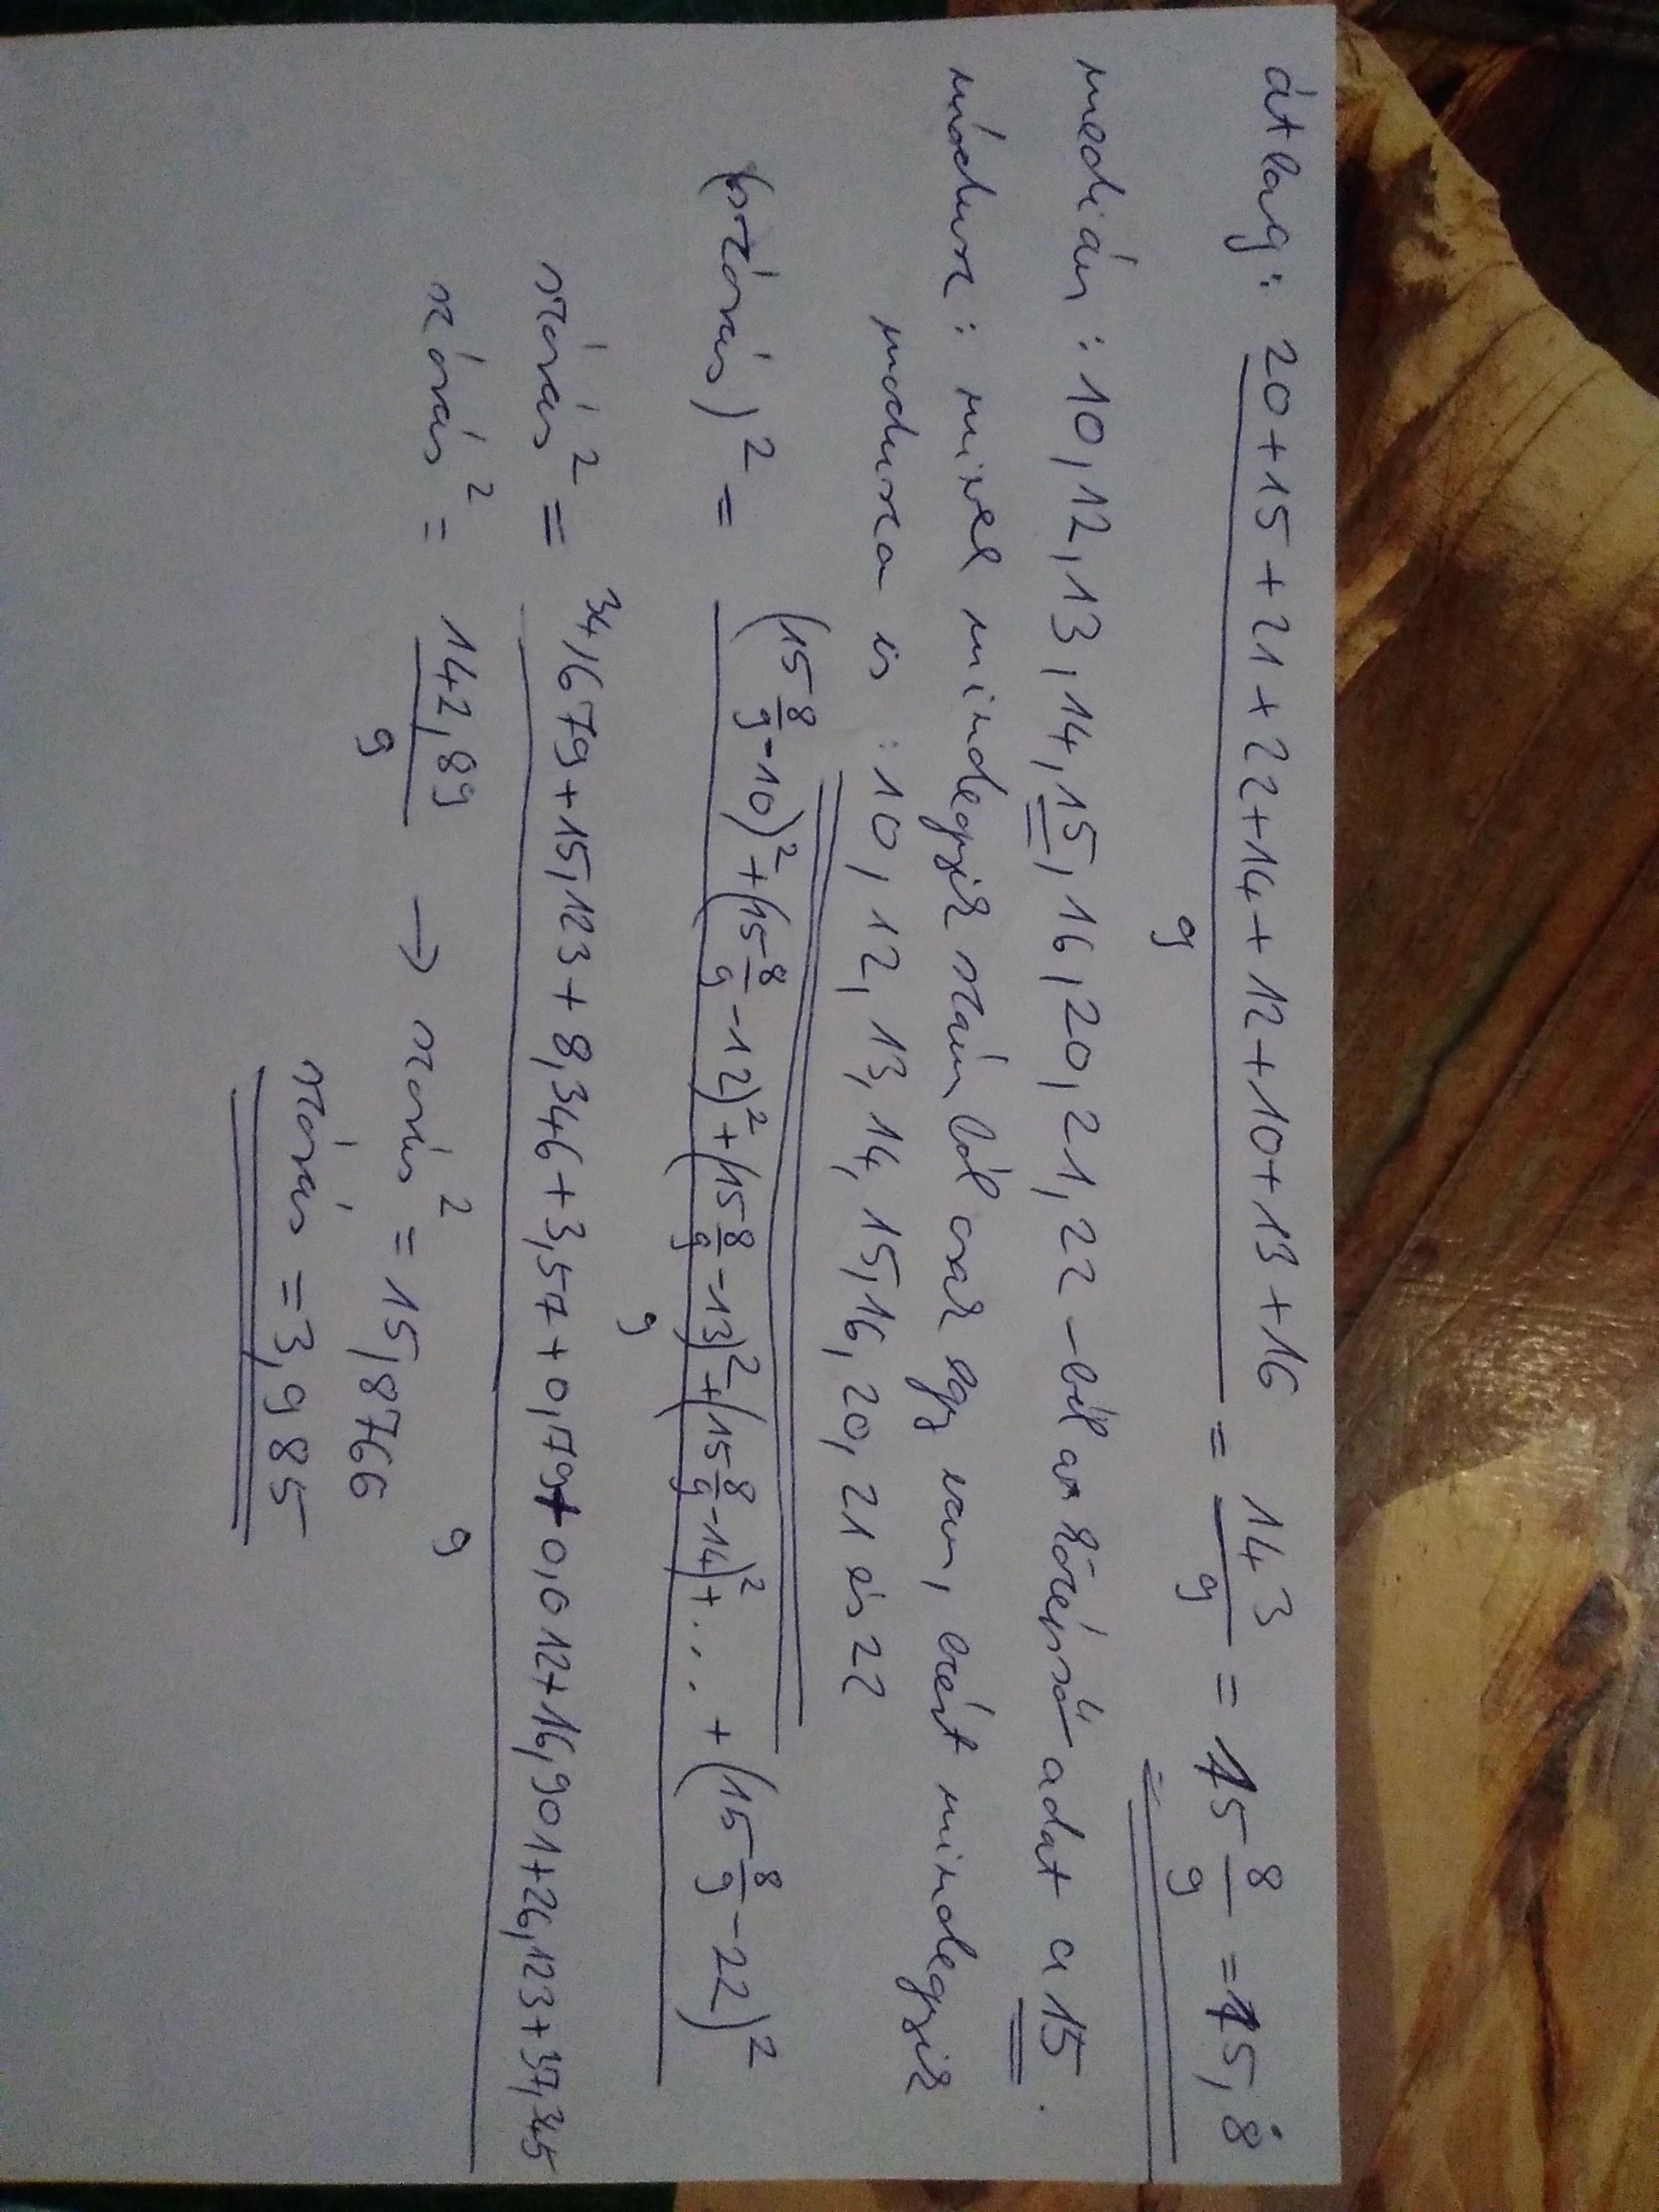 átlag: 20+15+21+22+14+12+10+13+16 / 9 = 143/9 = 15 8/9 = 15,8̇
medián: 10,12,13,14,15,16,20,21,22 -ből a középső adat a 15.
módusz: mivel mindegyik számból csak egy van, ezért mindegyik
modusza is: 10, 12, 13, 14, 15, 16, 20, 21 és 22
(szórás)² = (15 8/9 -10)² + (15 8/9 -12)² + (15 8/9 -13)² + (15 8/9 -14)² + ... + (15 8/9 -22)² / 9
szórás² = 34,679+15,123+8,346+3,57+0,79+0,012+16,901+26,123+37,345 / 9
szórás² = 142,89 / 9 → szorás² = 15,8766
szórás = 3,985